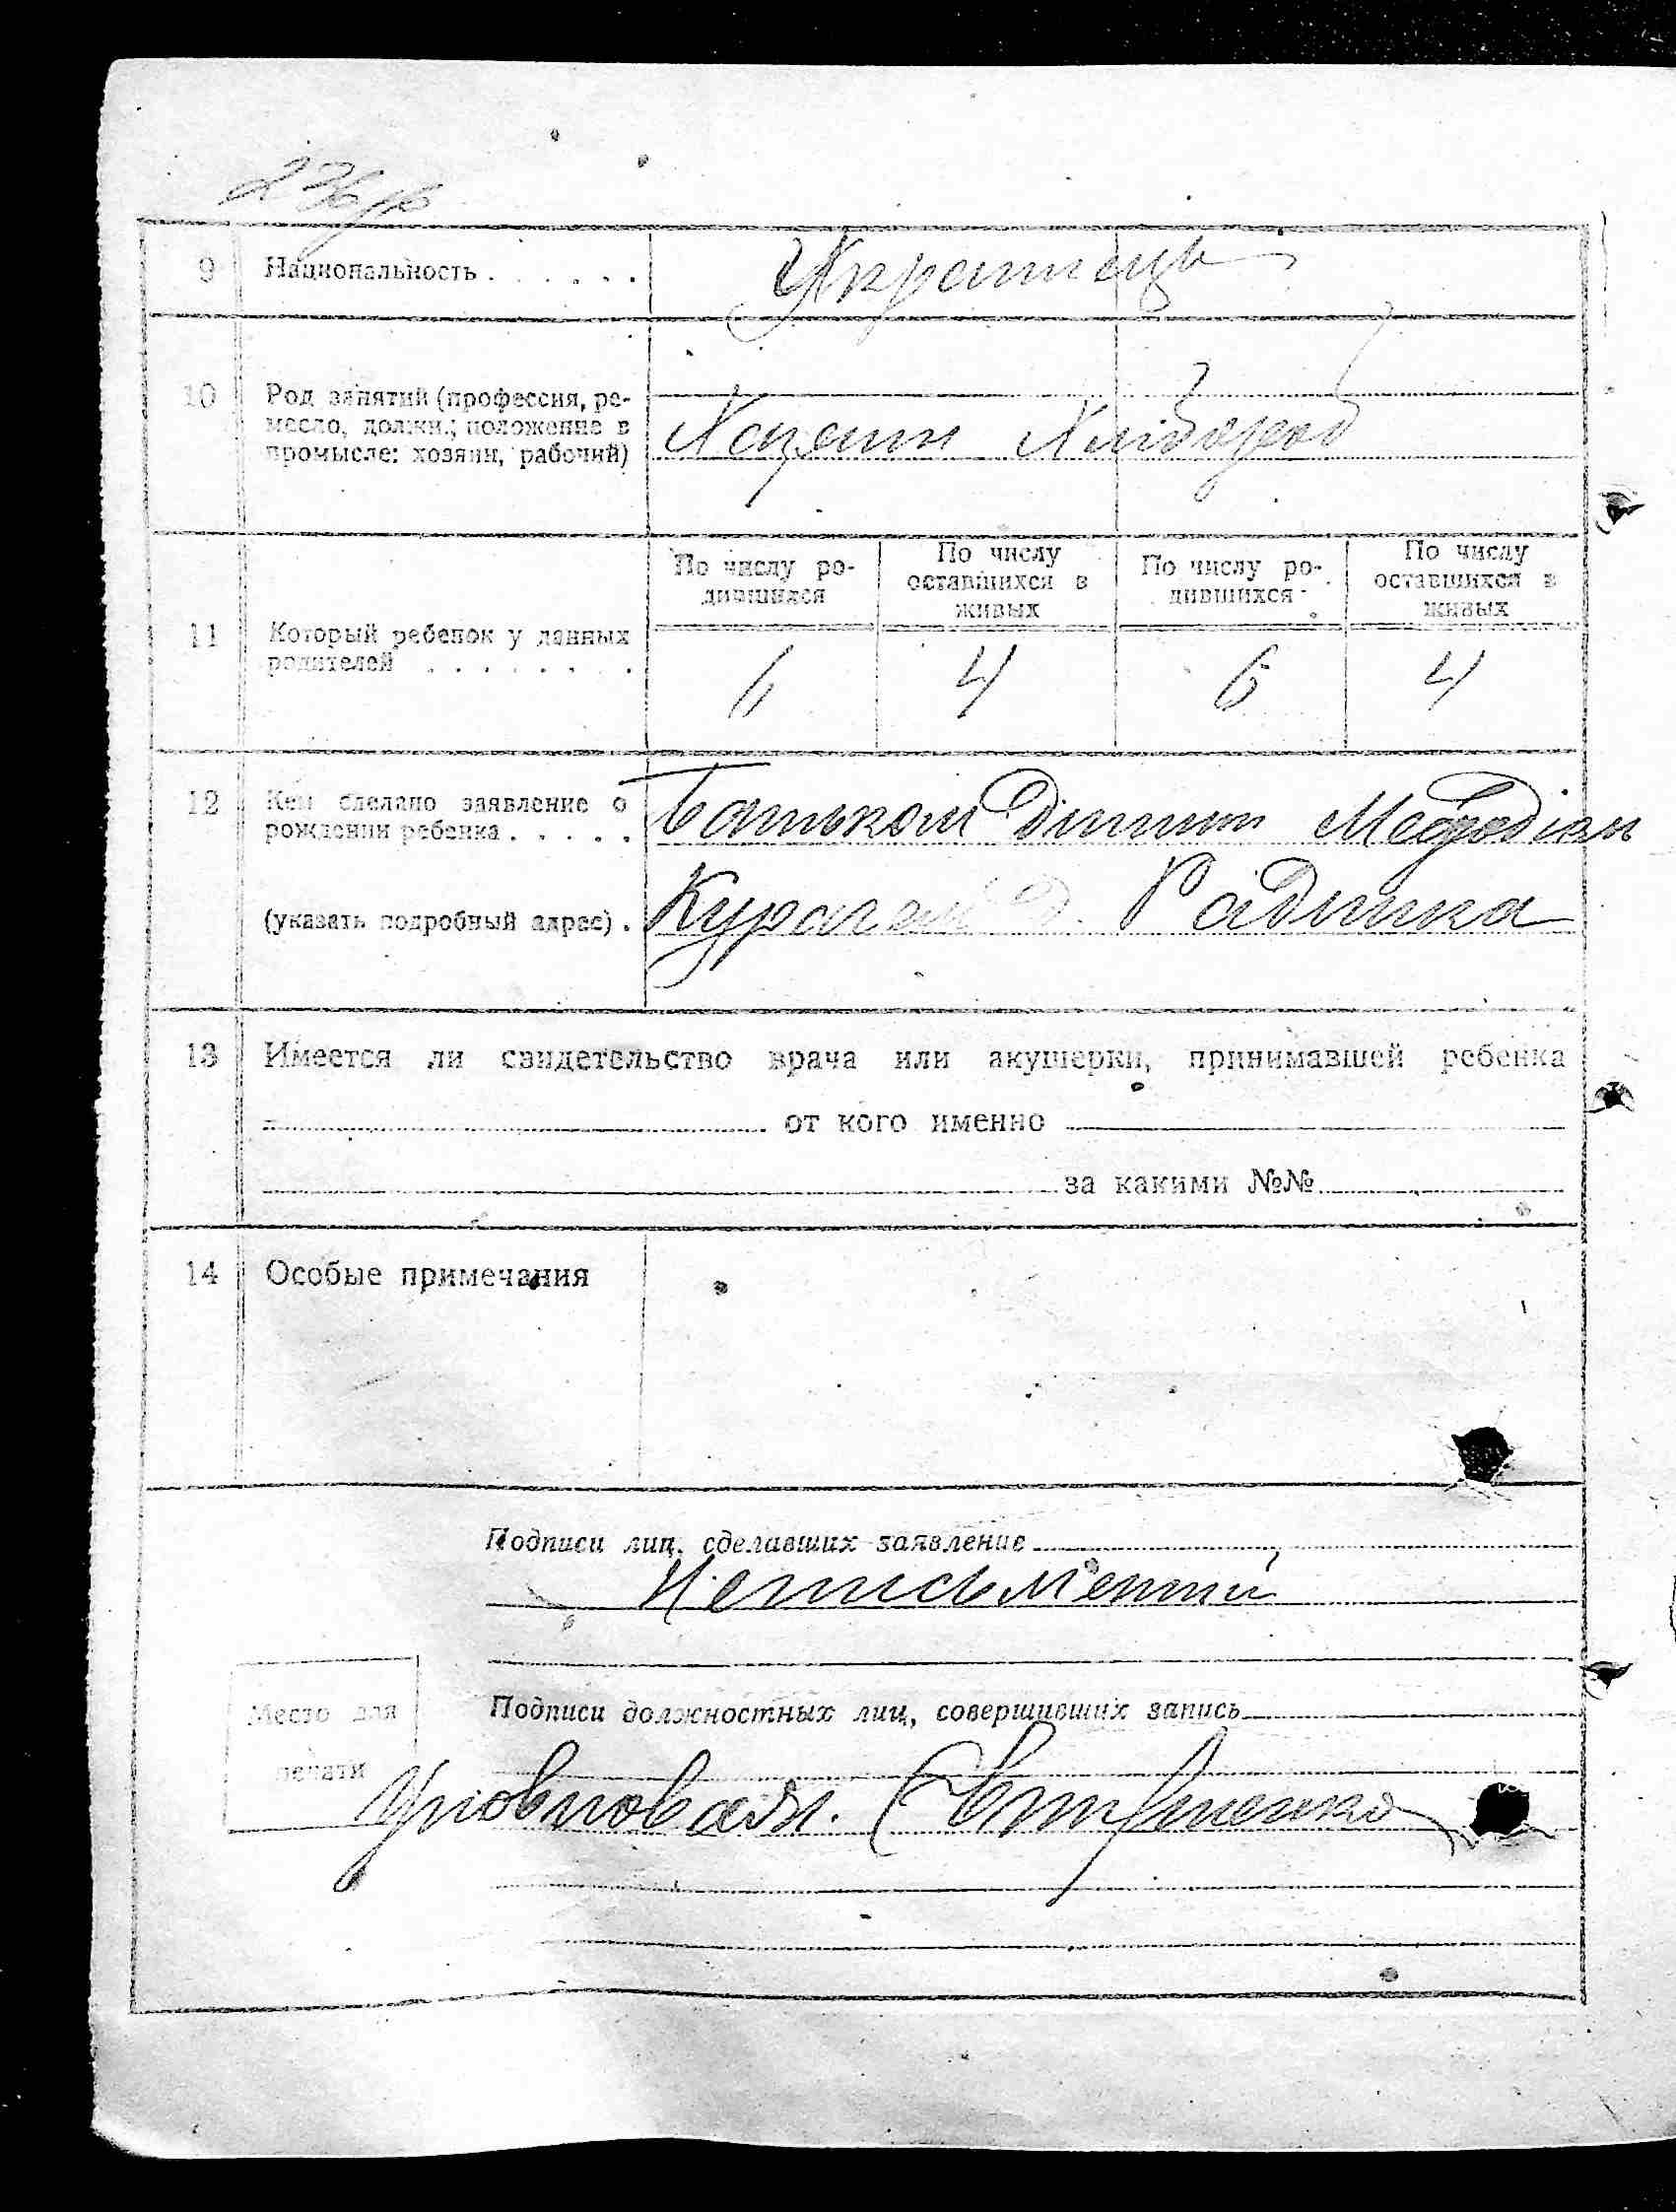 9 Национальность . . . . . . Украинець
10 Род занятий (профессия, ре-
месло, должн.; положение в
промысле: хозяин, рабочий)
Хазяин Хлібороб
По числу ро-
дившихся
По числу
оставшихся в
живых
По числу ро-
дившихся
По числу
оставшихся в
живых
11 Который ребенок у данных
родителей . . . . . . . .
6 4 6 4
12 Кем сделано заявление о
рождении ребенка . . . . .
Батьком Дитини Мефодієм
(указать подробный адрес) . Радинка
13 Имеется ли свидетельство врача или акушерки, принимавшей ребенка
от кого именно
за какими №№
14 Особые примечания
Подписи лиц, сделавших заявление
Неписьменний
Подписи должностных лиц, совершивших запись
Место для
печати